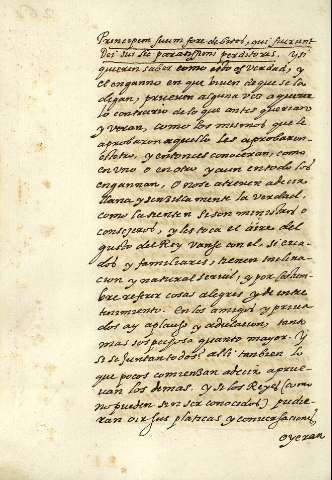 Principem suum fore debere, qui fuerunt
Dei sui sic paratissimi proditores. Y si
quieren saber como esto es verdad, y
el enganno en que viven de que se la
digan, prueven alguna vez a querer
lo contrario de lo que antes querian
y veran, como los mismos que le
aprobaron aquello les aprobaran
estotro, y entonces conoceran, como
en uno o en otro y aun en todo los
engannan, o no se atreven a decir
llana y sencillamente la verdad.
como la sienten si son ministros o
consejeros, y les toca el aire del
gusto del Rey vanse con el, si cria-
dos y familiares, tienen inclina-
cion y natural servil, y por costum-
bre referir cosas alegres y de entre
tenimiento. En los amigos y priva
dos ay aplauso y adulacion, tanto
mas sospechosa quanto mayor. Y
si se juntan todos alli tambien lo
que pocos comienzan a decir aprue-
van los demas. Y si los Reyes (como
no pueden sin ser conocidos) pudie-
ran oir sus platicas y conversaciones,
oyeran